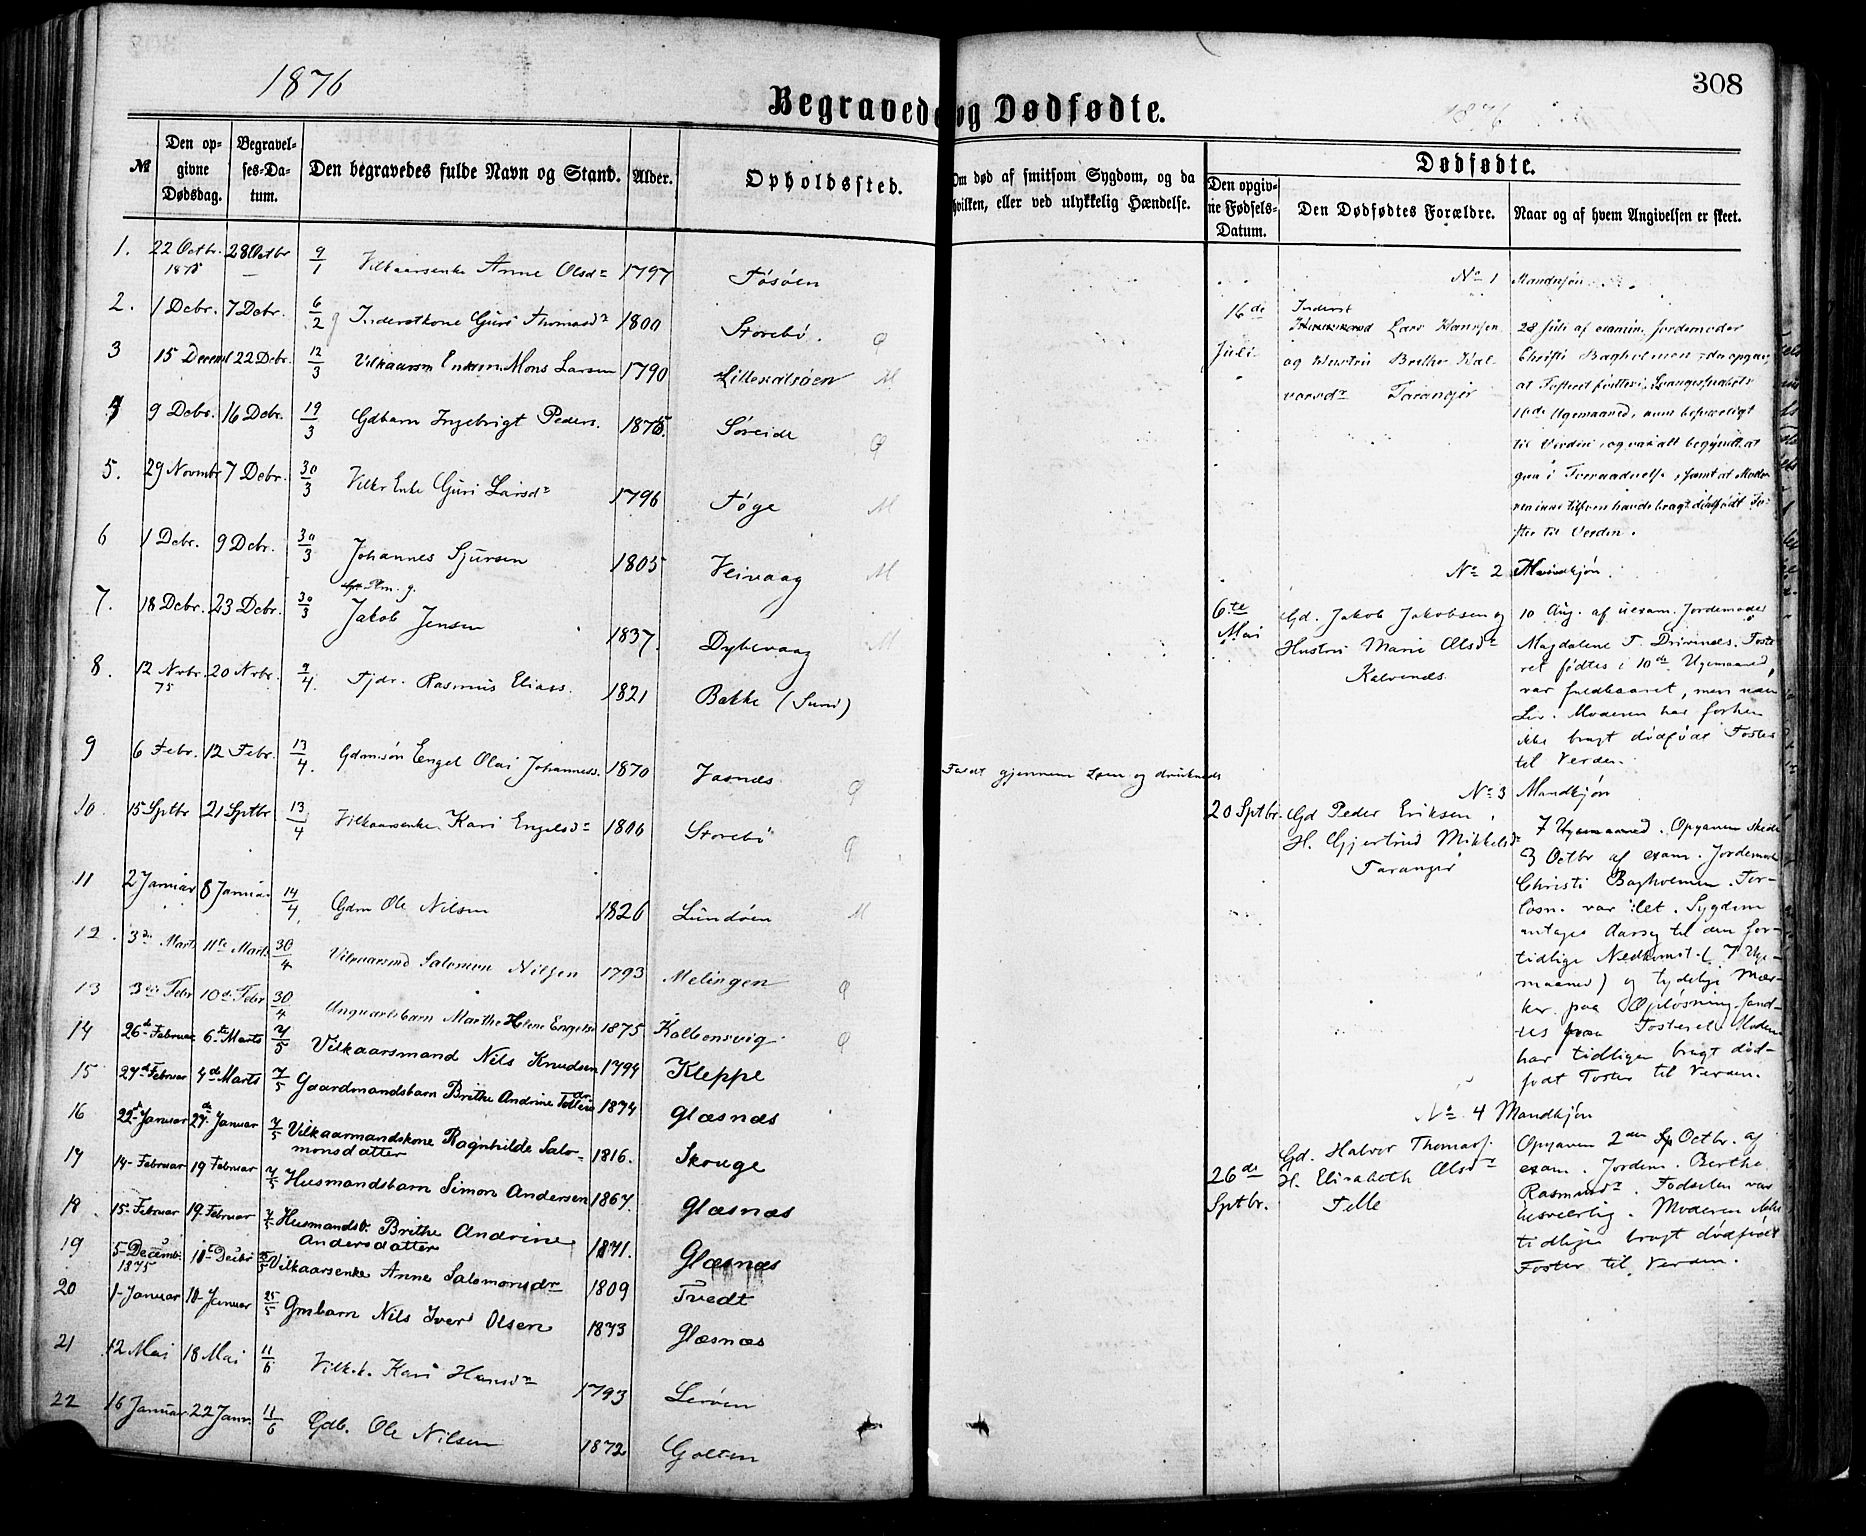 1876
308
Begravede og Dødfødte.
№
Den opgivne Dødsdag.
Begravelses-Datum.
Den begravedes fulde Navn og Stand.
Alder.
Opholdssted.
Om død af smitsom Sygdom, og da hvilken, eller ved ulykkelig Hændelse.
Dødfødte.
Den opgivne Fødsels-Datum.
Den Dødfødtes Forældre.
Naar og af hvem Angivelsen er skeet.
1. 22 Octbr. 1875 28 Octbr 9/1 Vilkaarsenke Anne Olsdr 1797 Tøsøen
2. 1 Debr. 7 Debr. 6/2 Inderstkone Guri Thomasdr 1800 Storebø.
3 15 Decemb 22 Debr. 12/3 Vilkaarsm Enkem Mons Larsen 1790 M
4 9 Debr. 16 Debr. 19/3 Gdbarn Ingebrigt Peders. 1875. Søreide
5. 29 Novmbr 7 Debr. 30/3 Vilkr Enke Guri Larsdr 1796 Føge M
6 1 Debr. 9 Debr. 30/3 Johannes Sjursen 1805 Veivaag M
7. 18 Debr. 23 Debr. 30/3 Jakob Jensen 1837. Dybevaag M
8. 12 Nvbr. 75 20 Nvbr. 7/4. Fjdr. Rasmus Eliass. 1821 Bakke (Sund)
9 6 Febr. 12 Febr. 13/4. Gdmsøn Engel Olai Johanness. 1870 Vasnæs Faldt gjennem Isen og druknede
10. 15 Sptbr 21 Sptbr 13/4 Vilkaarsenke Kari Engelsdr 1806 Storebø
11 2 Januar 8 Januar 14/4 Gdm Ole Nilsen 1826 Lundøen M
12. 3die Marts 11te Marts 30/4 Vilkaarsmd Salomon Nilsen 1793 Melingen
13 3die Febr 10de Febr 30/4 Ungkarlsbarn Marthe Helene Engelsdr 1875 Kolbensvig
14 26de Februar 6te Marts 7/5 Vilkaarsmand Nils Knudsen 1794 Kleppe
15 27de Februar 4de Marts 7/5 Gaardmandsbarn Brithe Andrine 1874 Glæsnæs
16 22de Januar 27de Januar 7/5 Vilkaarmandskone Ragnhilde Salo-
monsdatter 1816. Skouge
17 14 Februar 19 Februar 7/5 Husmandsbarn Simon Andersen 1867. Glæsnæs
18. 15 Februar 19 Februar 7/5 Husmandsb. Brithe Andrine
Andersdatter 1871. Glæsnæs
19 5 Decemb. 1875 Vilkaarsenke Anne Salomonsdr 1809 Tvedt
20 1 Januar 10 Januar 25/5 Gmbarn Nils Iver Olsen 1873 Glæsnæs
21 12 Mai 18 Mai 11/6 Vilk.k. Kari Hansdr 1793 Lerøen
22 16 Januar 22 Janr. 11/6 Gdb. Ole Nilsen 1872 Golten
No 1 Mandkjøn
16de Juli
Inderst
Lars Hansen
og Hustru Brithe Hal-
vorsdr Taranger
28 Juli af examin. Jordemoder
Christi Bagholmen, der opgav,
at Fosteret fødtes i Svangerskabets
10de Ugemaaned,
til Verden, og var alt begyndt at
gaa i Forraadnelse, samt at Mode-
ren havde bragt dødfødt Fo-
ster til Verden.
No 2 Mandkjøn.
6te Mai
Gd. Jakob Jakobsen og
Hustru Marie Olsdr
Kalvenæs
10 Aug. af uexam. Jordemoder
Magdalene T. Drivenæs. Foste-
ret fødtes i 10de Ugemaaned,
var fuldbaaret, men uden
Liv. Moderen har forhen
ikke bragt dødfødt Foster
til Verden.
No 3 Mandkjøn
20 Sptbr.
Gd Peder Eriksen,
H. Gjertrud Mikkelsdr
Taranger
7 Ugemaaned. Opgaven skede
3 Octbr af exam. Jordemoder
Christi Bagholmen. For-
løsn. var let. Sygdom
antages Aarsag til den for-
tidlige Nedkomst. (7 Uge-
maaned) og tydelige Mær-
ker paa Opløsning fand-
tes paa Fosteret. Moderen
har tidligere bragt død-
født Foster til Verden.
No 4 Mandkjøn
26de Sptbr.
Gd. Halvor Thomass.
H. Elisabeth Olsdr
Telle
Opgaven 2den Octbr. af
exam. Jordem. Berthe
Rasmusdr. Fødselen var
besværlig. Moderen ikke
tidligere bragt dødfødt
Foster til Verden.